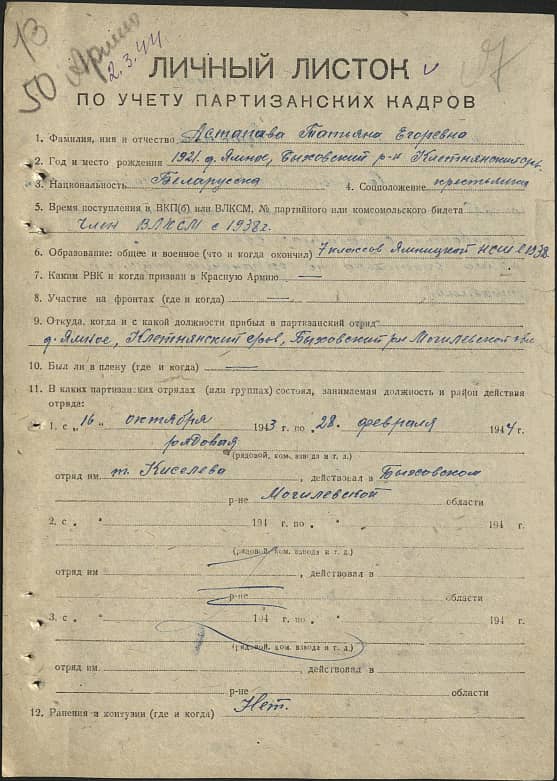 13
50
Армию
2.3.44
ЛИЧНЫЙ ЛИСТОК
ПО УЧЕТУ ПАРТИЗАНСКИХ КАДРОВ
1. Фамилия, имя и отчество Астапава Татьяна Егоревна
2. Год и место рождения 1921 д. Ямное, Быховский р-н Клетнянский с/с
3. Национальность Беларусска 4. Соцположение крестьянка
5. Время поступления в ВКП(б) или ВЛКСМ, № партийного или комсомольского билета
Член ВЛКСМ с 1938г.
6. Образование: общее и военное (что и когда окончил) 7 классов Ямницкой НСШ в 1938.
7. Каким РВК и когда призван в Красную Армию —
8. Участие на фронтах (где и когда)
9. Откуда, когда и с какой должности прибыл в партизанский отряд
д. Ямное, Клетнянский, Быховский р-н Могилевской обл.
10. Был ли в плену (где и когда) —
11. В каких партизанских отрядах (или группах) состоял, занимаемая должность и район действия
отряда:
1. с „16“ октября 1943 г. по „28“ февраля 1944 г.
рядовая
(рядовой, ком. взвода и т. д.)
отряд им т. Киселева, действовал в Быховском
р-не Могилевской области
2. с „ “ 194 г. по „ “ 194 г.
(рядовой, ком. взвода и т. д.)
отряд им , действовал в
р-не области
3. с „ “ 194 г. по „ “ 194 г.
(рядовой, ком. взвода и т. д.)
отряд им. , действовал в
р-не области
12. Ранения и контузии (где и когда) Нет.